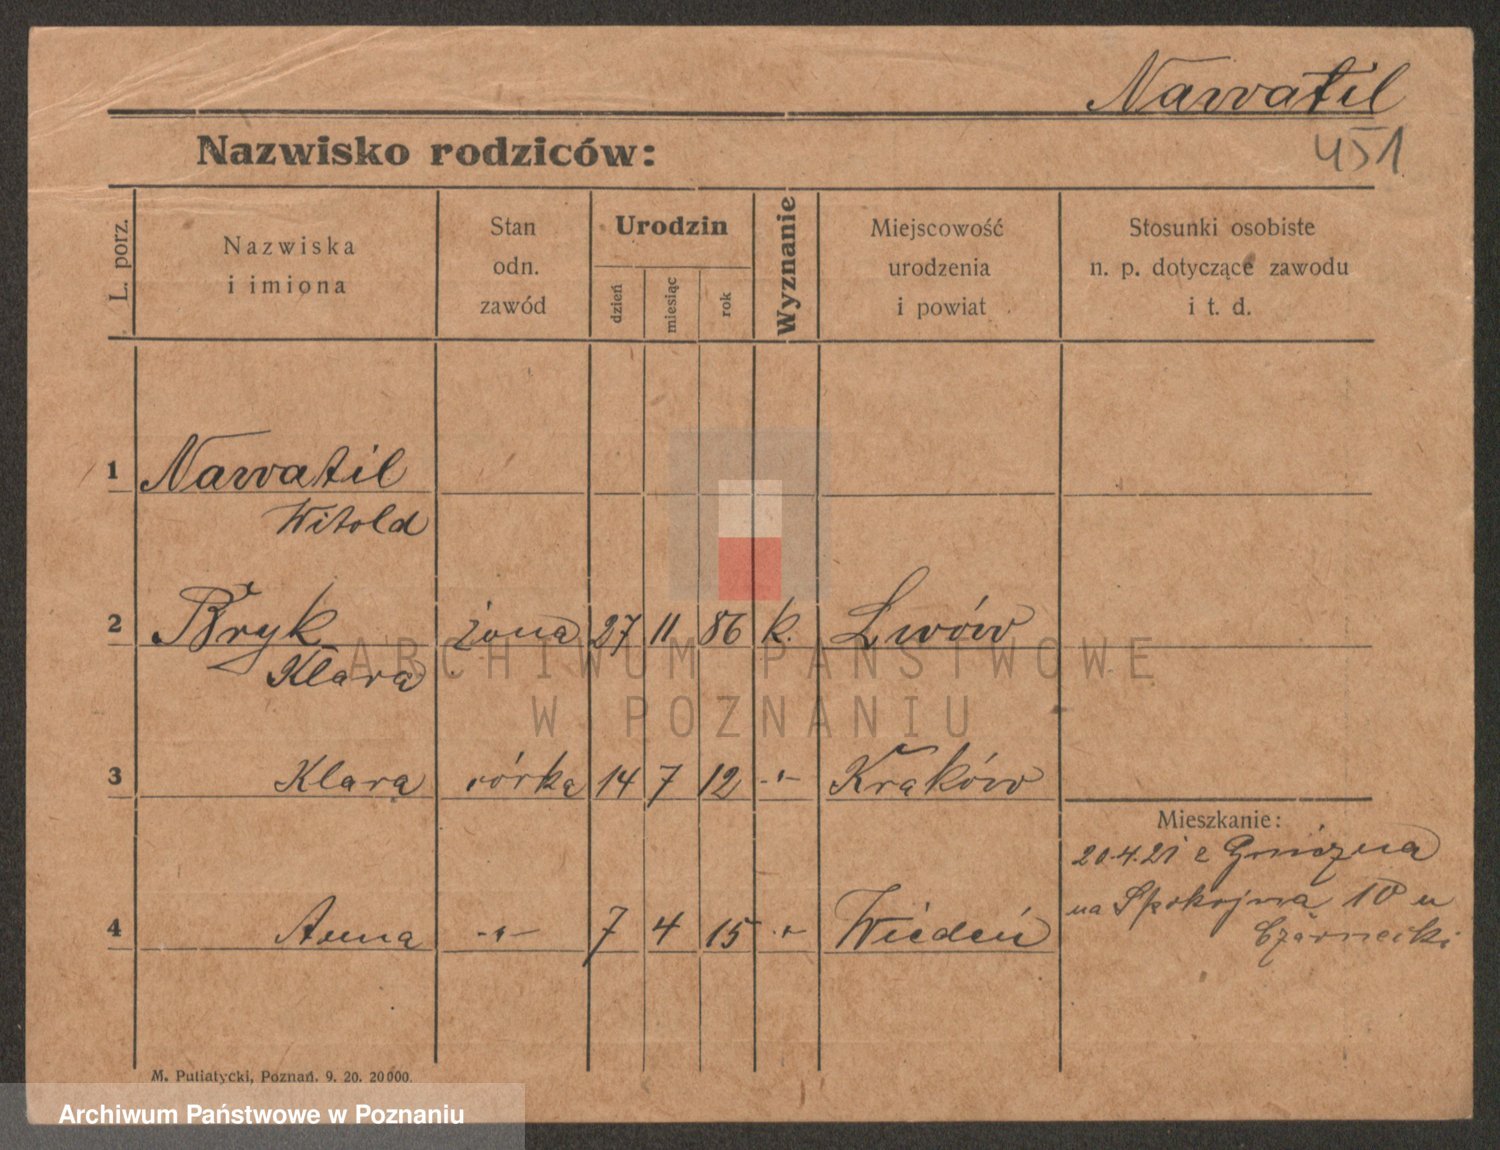 Nawatil
Nazwisko rodziców:
451
L. porz.
Nazwiska
i imiona
Stan
odn.
zawód
Urodzin
dzień
miesiąc
rok
Wyznanie
Miejscowość
urodzenia
i powiat
Stosunki osobiste
n. p. dotyczące zawodu
i t. d.
1 Nawatil
Witold
2 Bryk żona 27 11 86 k. Lwów
Klara
3 Klara córka 14 7 12 -"- Kraków
Mieszkanie:
20.4.21 z Gniezna
na Spokojna 10 u
Czarnecki
4 Anna -"- 7 4 15 -"- Wiedeń
M. Putiatycki, Poznań. 9. 20. 20000.
ARCHIWUM PAŃSTWOWE
W POZNANIU
Archiwum Państwowe w Poznaniu